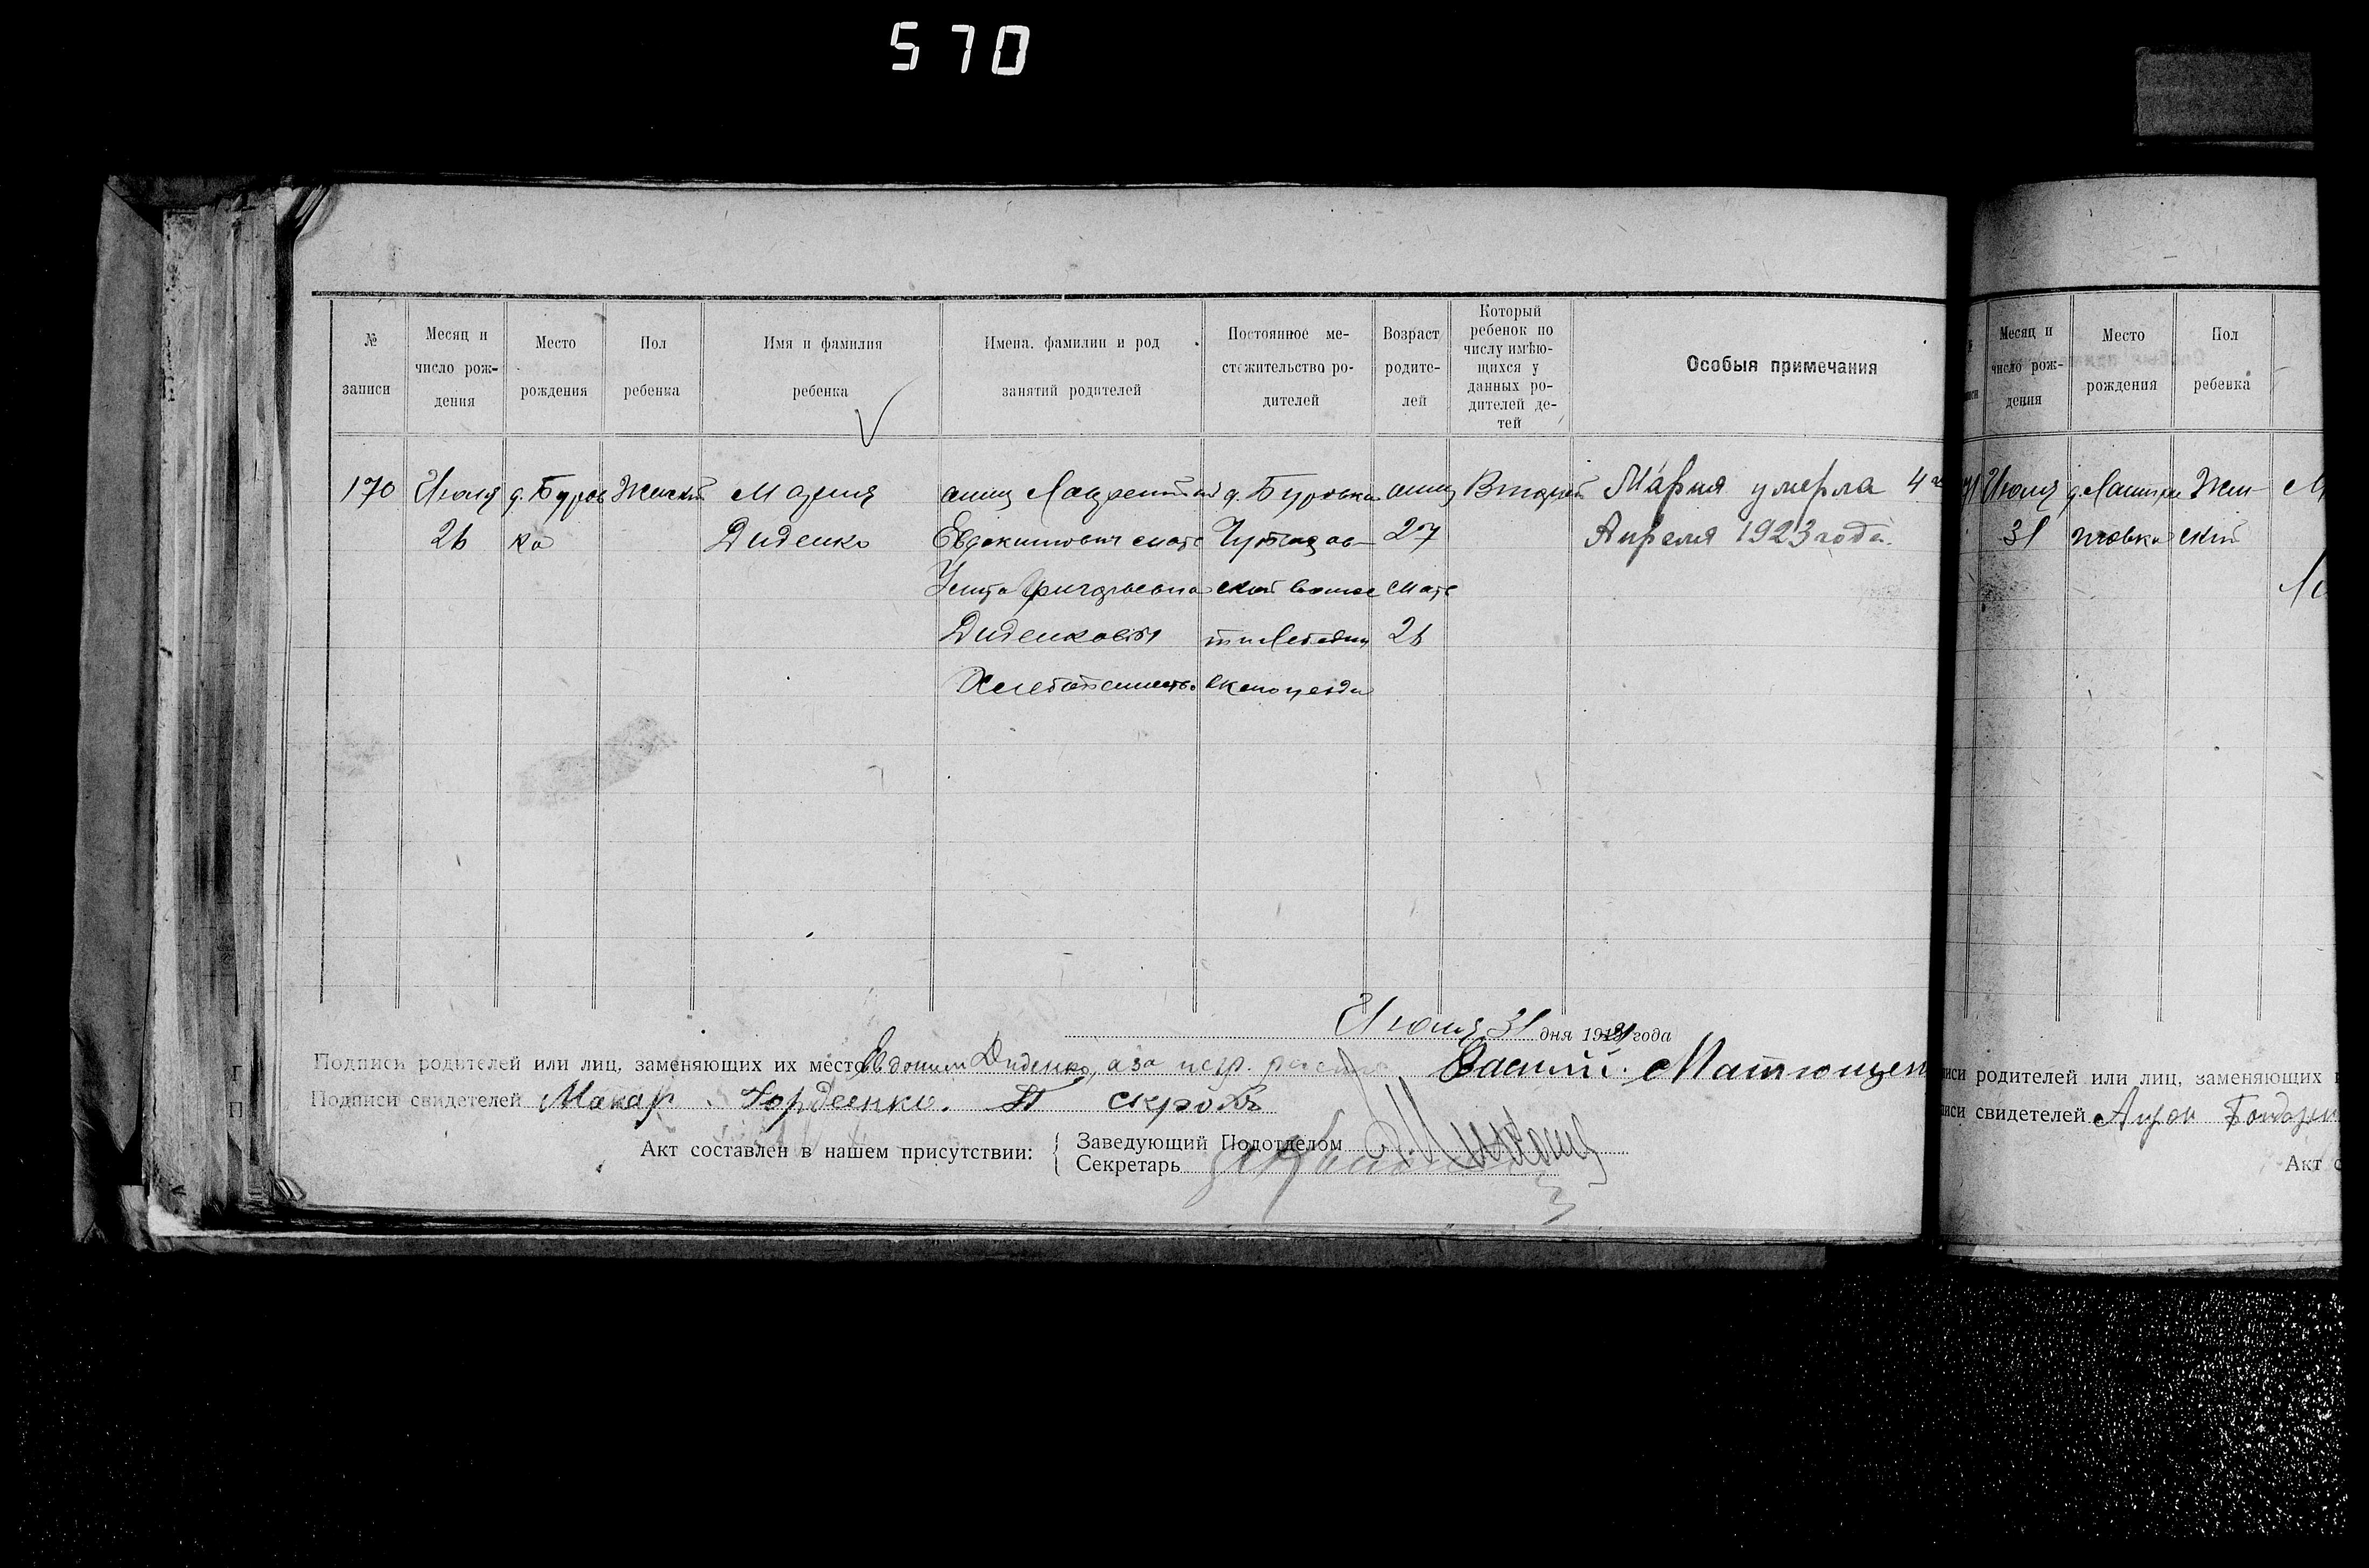 570
№ записи
Месяц и число рождения
Место рождения
Пол ребенка
Имя и фамилия ребенка
Имена, фамилии и род занятий родителей
Постоянное местожительство родителей
Возраст родителей
Который ребенок по числу имѣющихся у данных родителей детей
Особыя примечания
170
Июля
26
д. Буров
ка
Женский
Мария
Диденко
отец Лаврентий
Евдокимович мать
Григорьевна
Диденковы
Хлебопашество
д. Буровка
ской волос
ти Лебедин
ского уезда
отец
27
мать
26
Второй
Мария умерла 4го
Апреля 1923 года.
Июля 31 дня 1921 года
Подписи родителей или лиц, заменяющих их место Евдоким Диденко, а за негр. Василий Матющен
Подписи свидетелей Макар Гордеенко.
Акт составлен в нашем присутствии:
Заведующий Подотделом
Секретарь
Месяц и число рождения
Место рождения
Пол ребенка
71
Июля
31
Жен
ский
М
писи родителей или лиц, заменяющих
писи свидетелей
Акт с